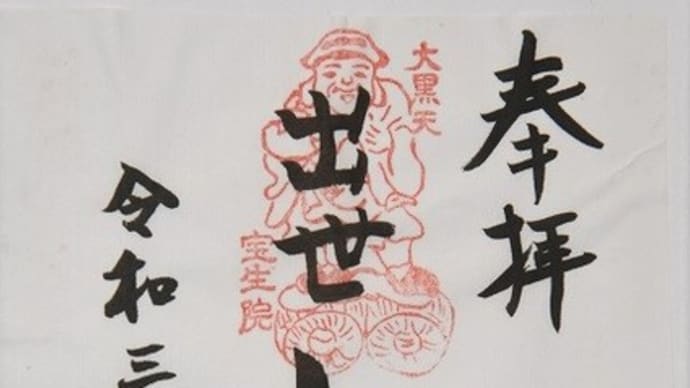 奉拝
大黒天
出世
宝生院
令和三